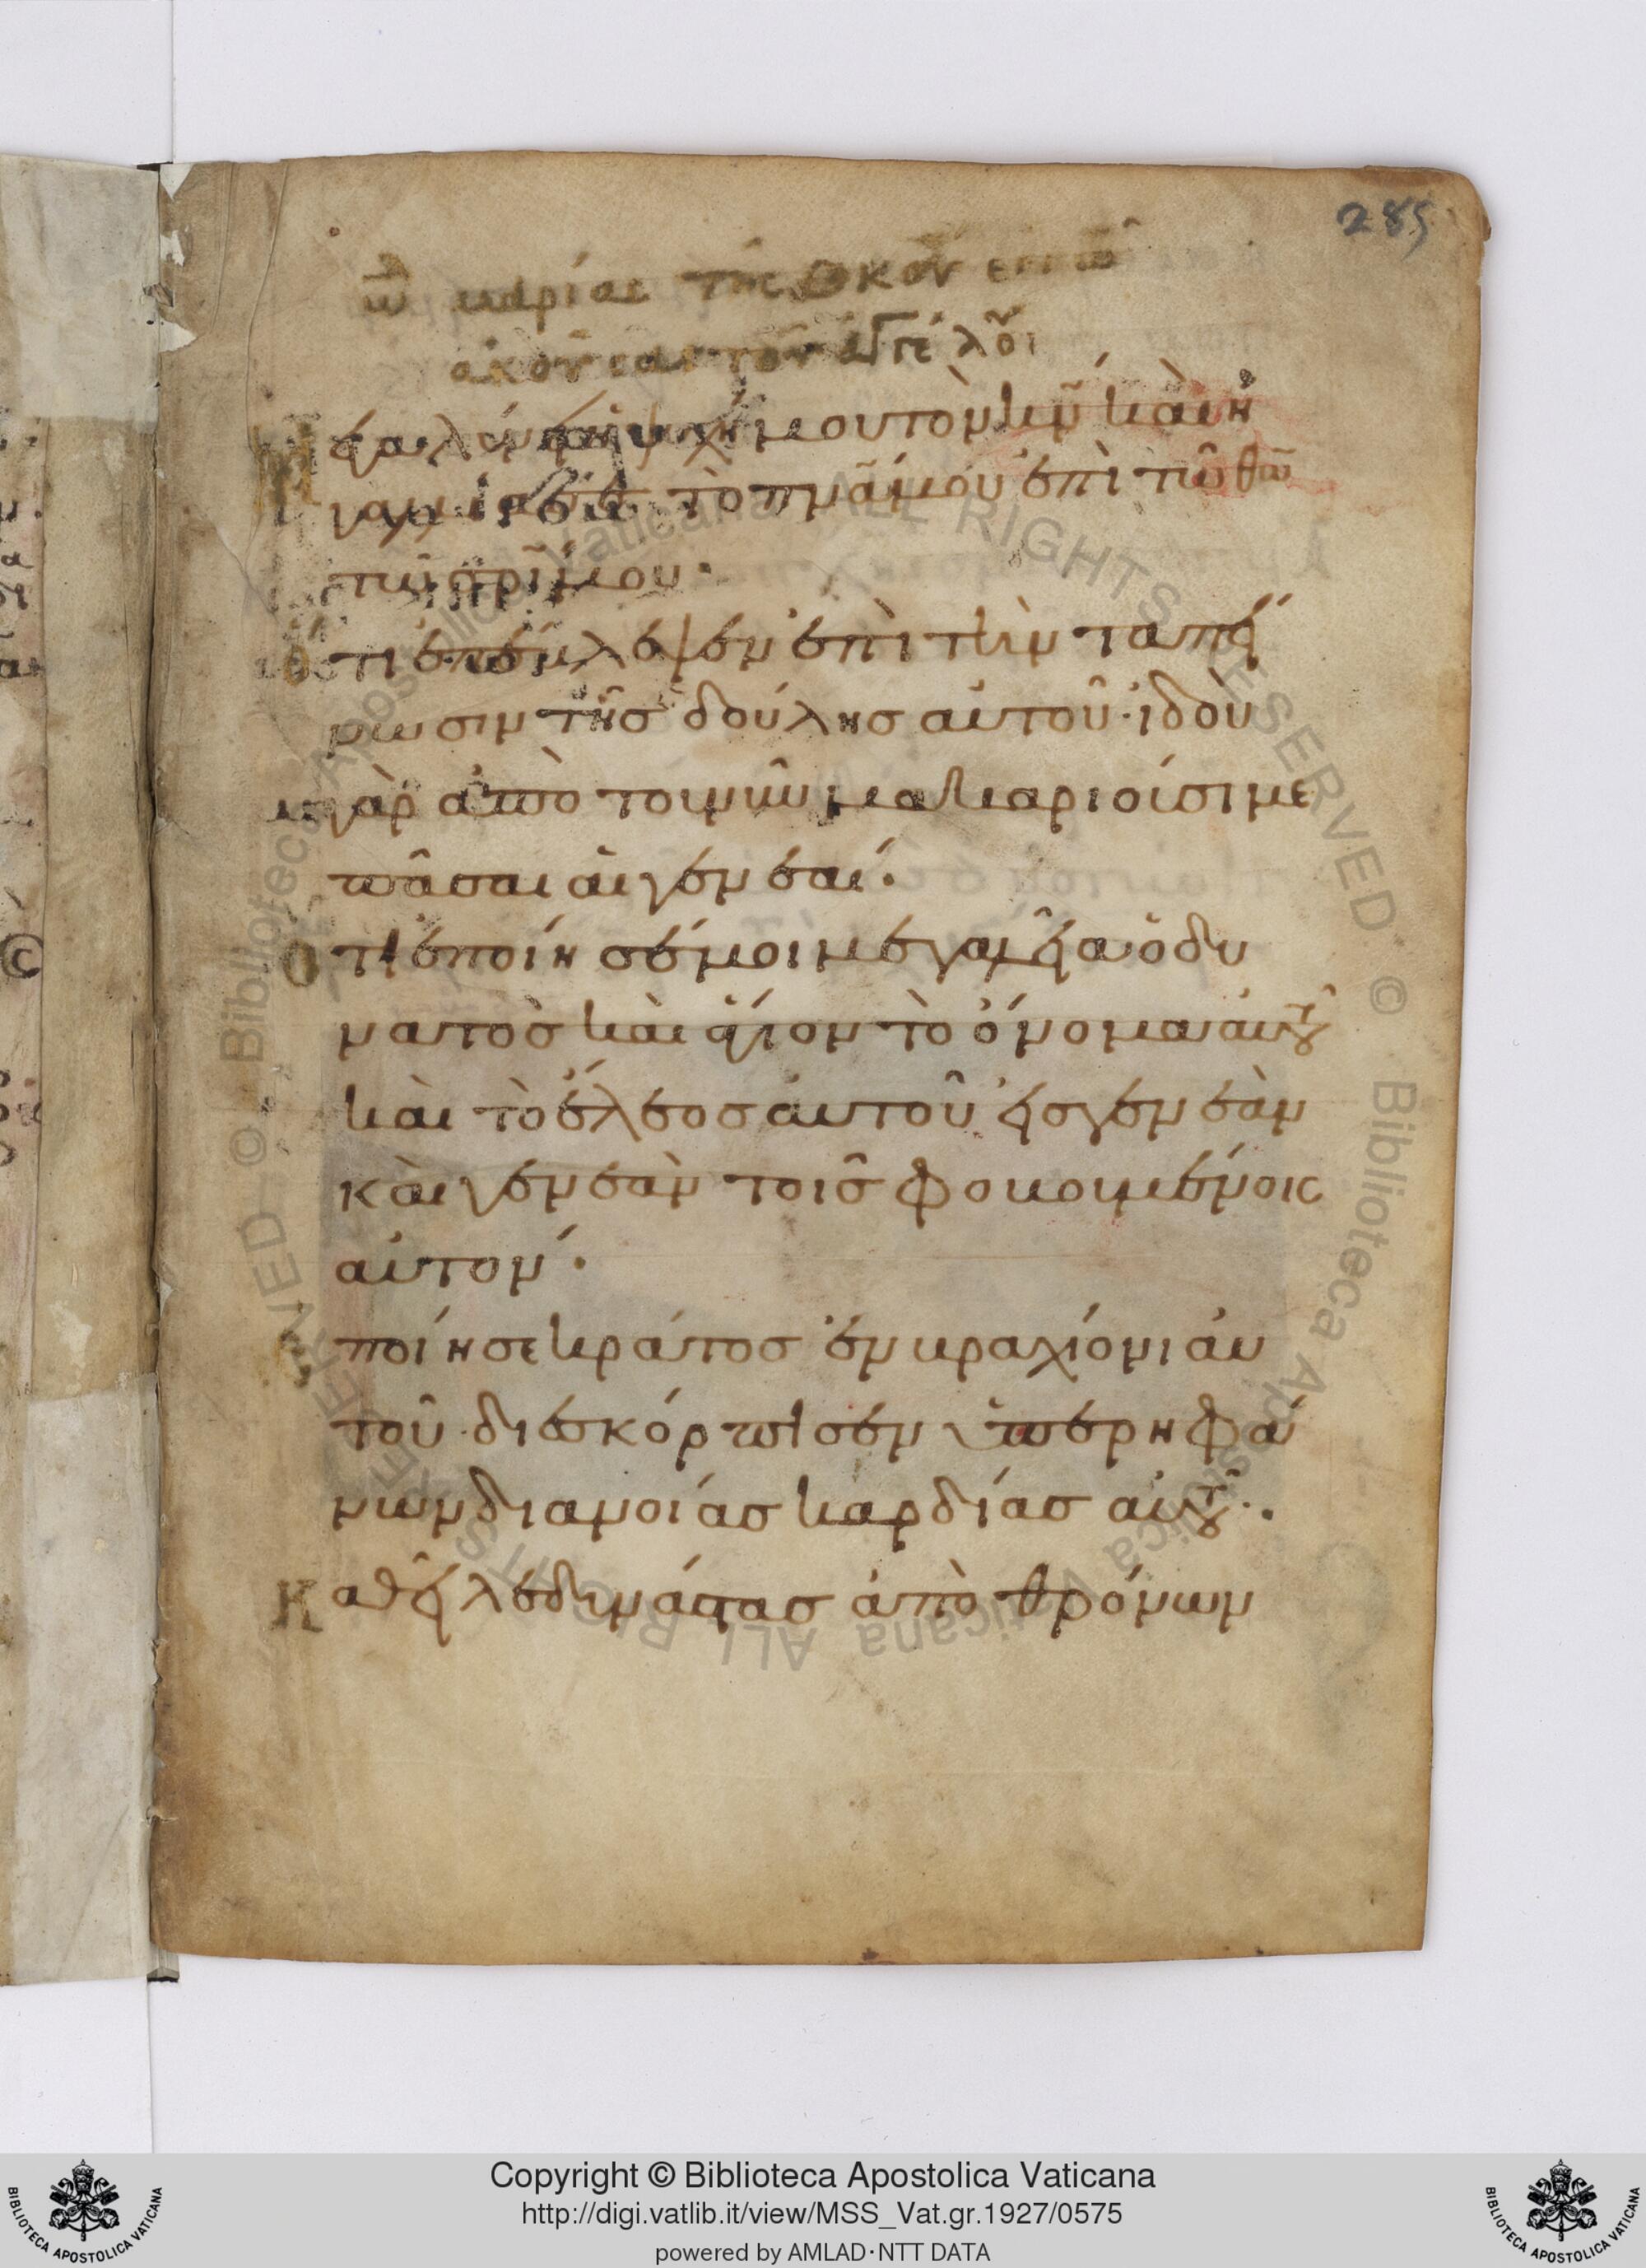 285
ὠ μαρίας τῆς θκου ἐκ τῶ
ακούσας τοῦ ἀγγέλου
Μεγαλύνει ἡ ψυχή μου τὸν κν̄ καὶ ἠ
γαλλίασε τὸ πνᾶ μου ἐπὶ τῶ θω̄
τῶ σρῑ μου·
Ὅτι ἐπέβλεψεν ἐπὶ τὴν ταπεί
νωσιν τῆσ δούλησ αὐτοῦ· ἰδοὺ
γὰρ ἀπὸ τοῦ νῦν μακαριοῦσί με
πᾶσαι αἱ γενεαί·
Ὅτι ἐποίησέ μοι μεγαλεῖα ὁ δυ
νατὸσ καὶ ἅγιον τὸ ὄνομα αὐτοῦ
καὶ τὸ ἔλεοσ αὐτοῦ εἰσ γενεὰν
καὶ γενεὰν τοῖσ φοβουμένοις
αὐτόν·
Ἐποίησε κράτοσ ἐν βραχίονι αὐ
τοῦ· διεσκόρπισεν ὑπερηφά
νων διανοίασ καρδίασ αὐτοῦ·
Καθεῖλε δυνάστασ ἀπὸ θρόνων
Copyright © Biblioteca Apostolica Vaticana
http://digi.vatlib.it/view/MSS_Vat.gr.1927/0575
powered by AMLAD·NTT DATA
BIBLIOTECA APOSTOLICA VATICANA
BIBLIOTECA APOSTOLICA VATICANA